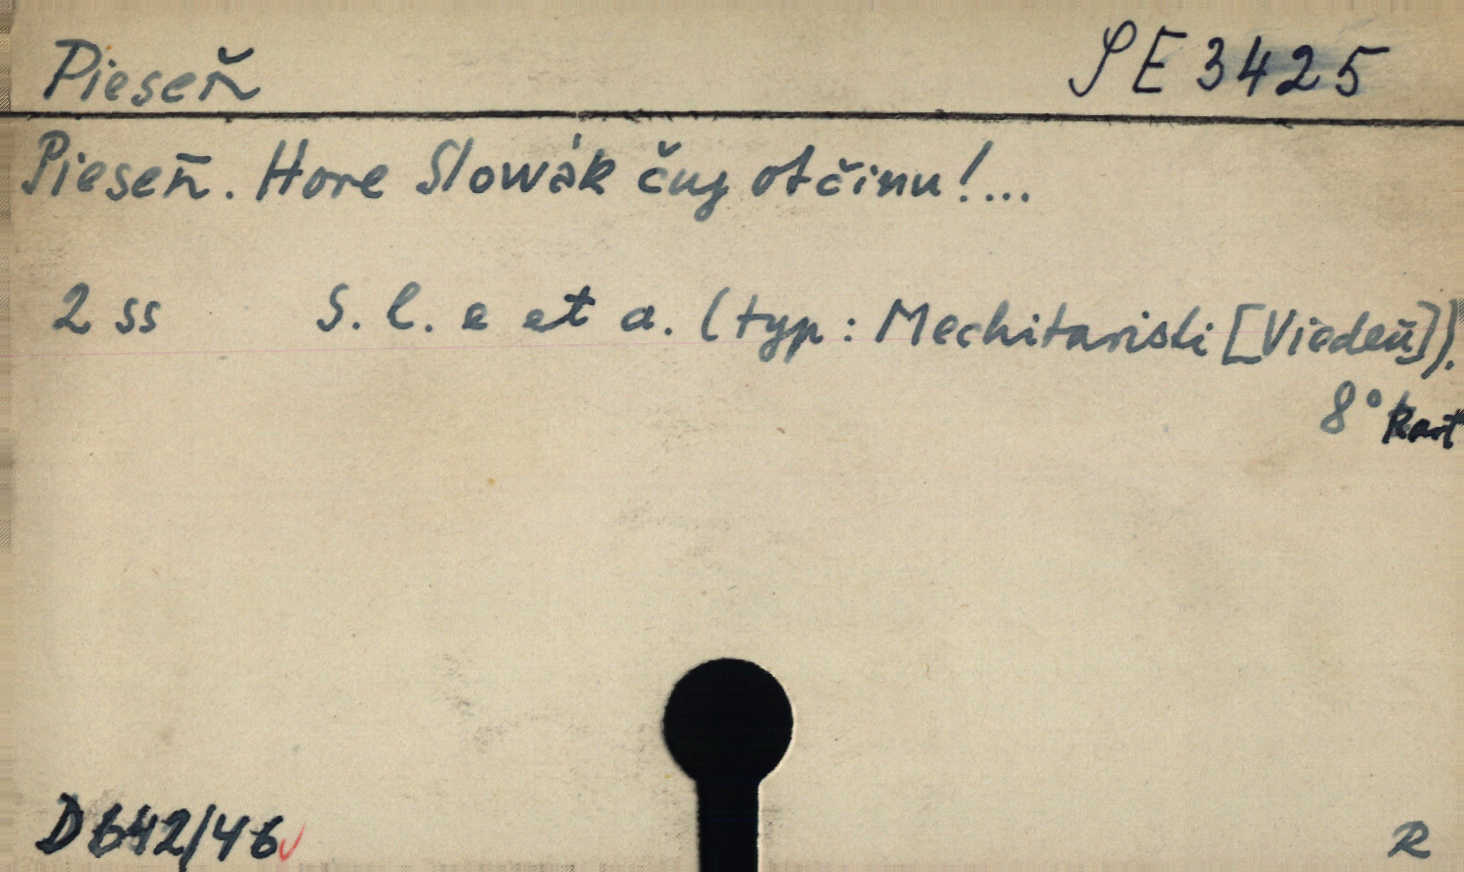 Pieseň SE 3425
Pieseň. Hore Slowák čuj otčinu!...
2 ss S. l. e et a. (typ: Mechitaristi [Viedeň]).
8° kart
D642/46 R